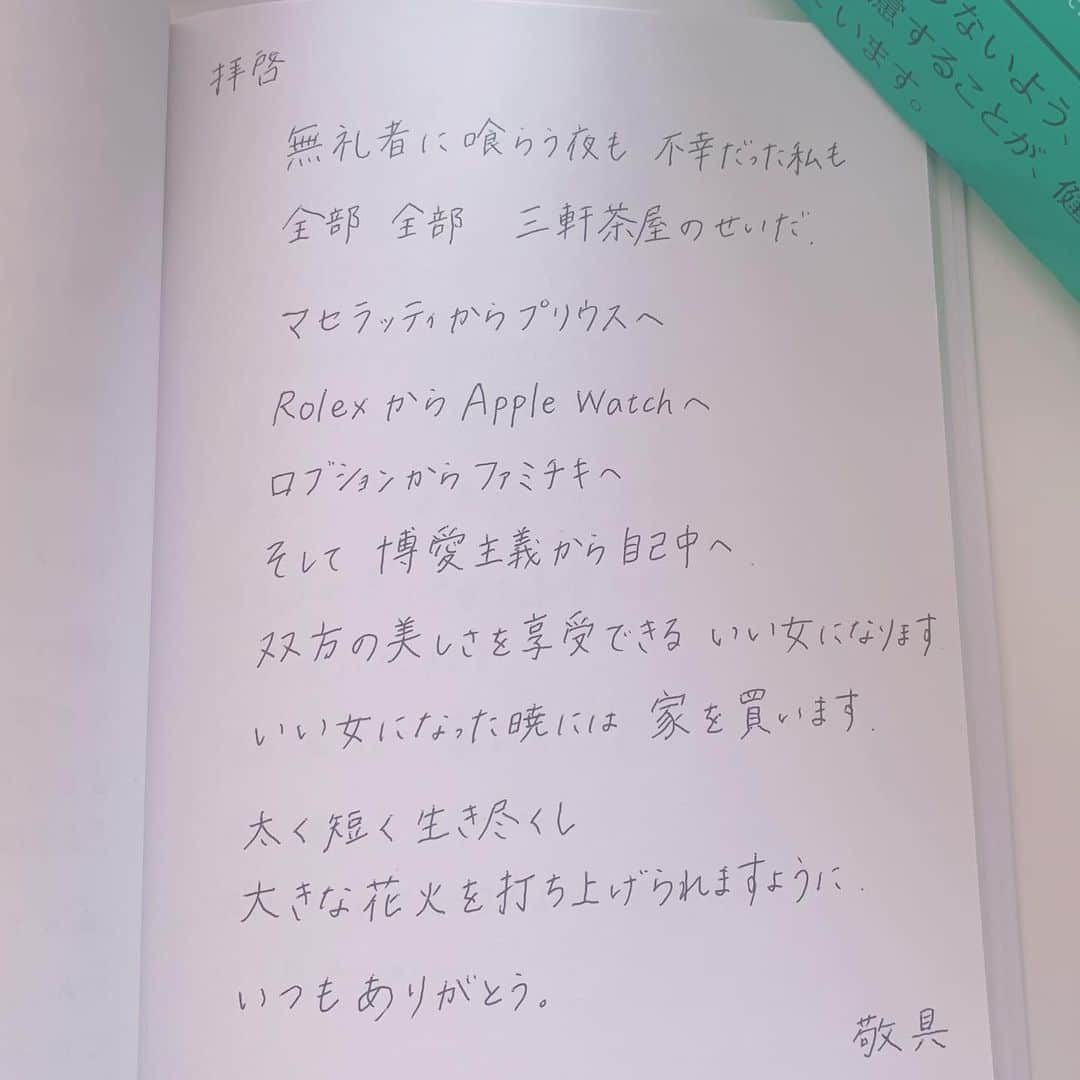 拝啓
無礼者に喰らう夜も 不幸だった私も
全部 全部 三軒茶屋のせいだ.
マセラッティからプリウスへ
Rolexから Apple Watchへ
ロブションからファミチキへ
そして 博愛主義から自己中へ.
双方の美しさを享受できる いい女になります.
いい女になった暁には 家を買います.
太く短く生き尽くし
大きな花火を打ち上げられますように.
いつもありがとう。
敬具
しないよう、
慮することが、健
います。